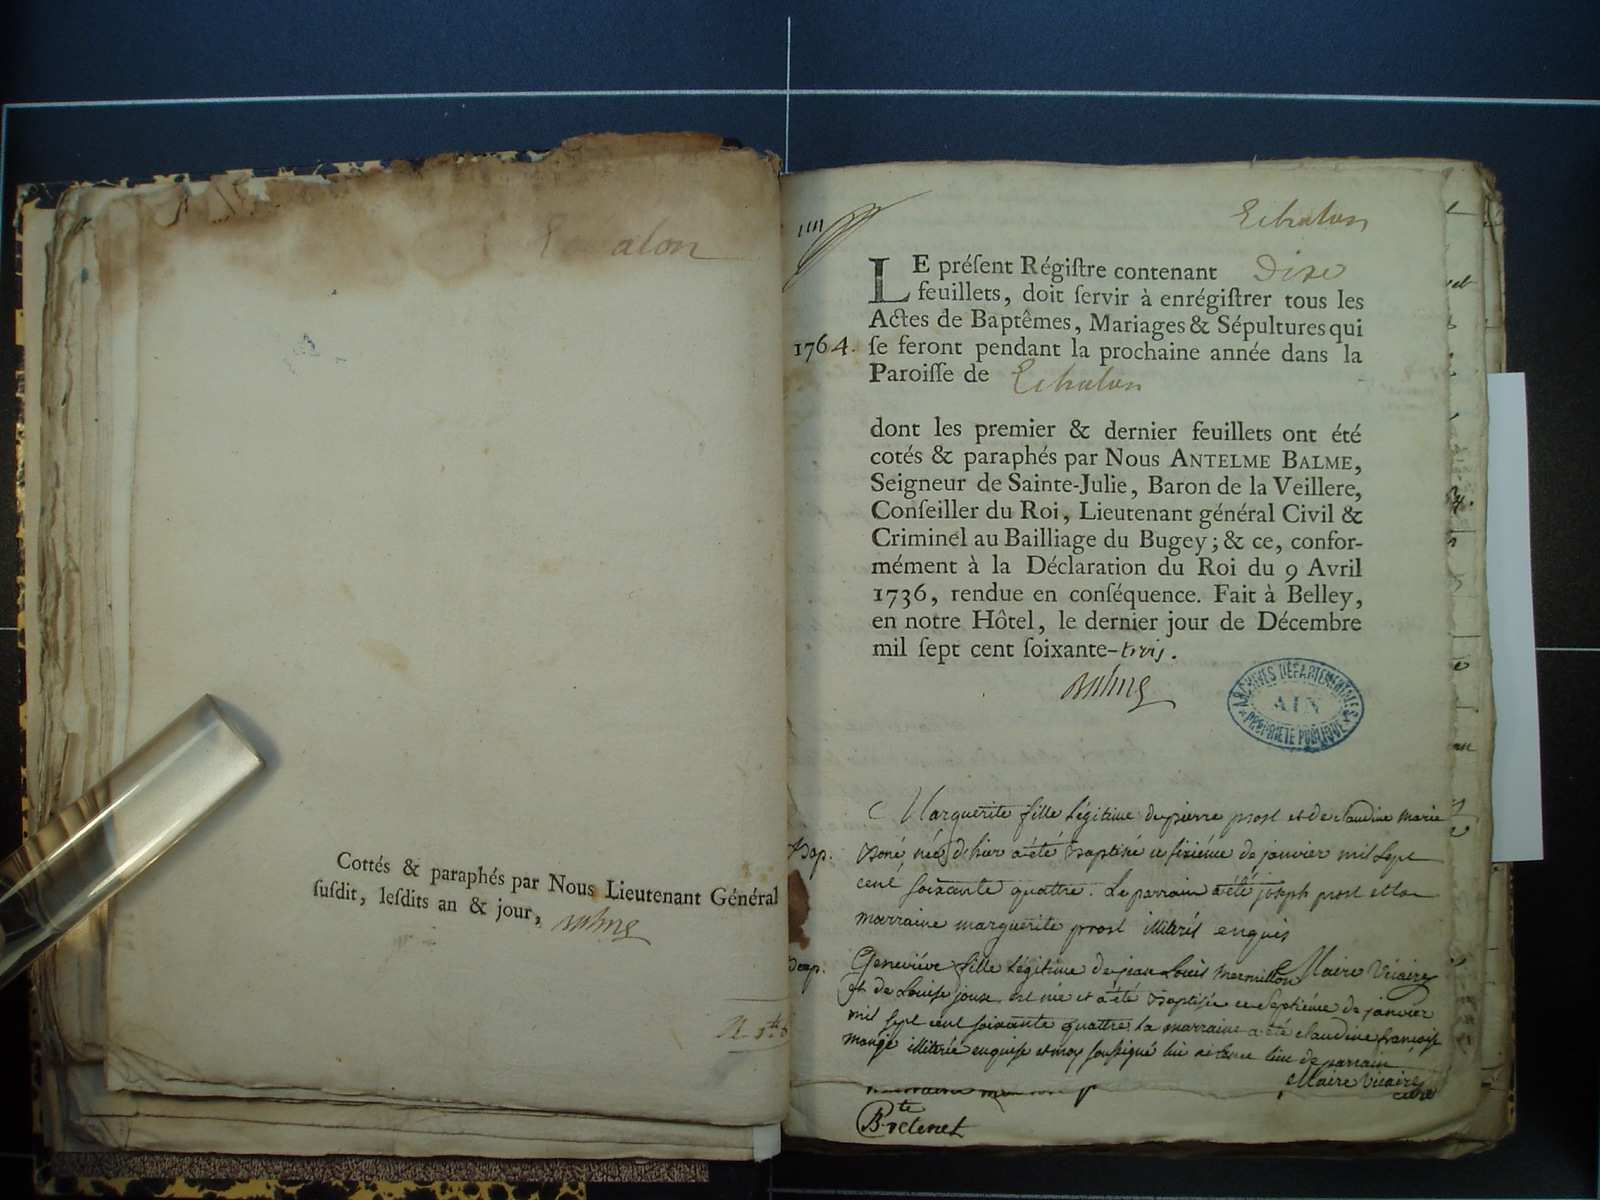 alon
Cottés & paraphés par Nous Lieutenant Général
ſuſdit, leſdits an & jour, Balme
Echalon
LE préſent Régiſtre contenant Dixe
feuillets, doit ſervir à enrégiſtrer tous les
Actes de Baptêmes, Mariages & Sépultures qui
1764. ſe feront pendant la prochaine année dans la
Paroiſſe de Echalon
dont les premier & dernier feuillets ont été
cotés & paraphés par Nous ANTELME BALME,
Seigneur de Sainte-Julie, Baron de la Veillere,
Conſeiller du Roi, Lieutenant général Civil &
Criminel au Bailliage du Bugey; & ce, confor-
mément à la Déclaration du Roi du 9 Avril
1736, rendue en conſéquence. Fait à Belley,
en notre Hôtel, le dernier jour de Décembre
mil ſept cent ſoixante-trois.
Balme
ARCHIVES DÉPARTEMENTALES
AIN
PROPRIÉTÉ PUBLIQUE
Marguerite fille légitime de pierre prost et de claudine marie
Bap. née d'hier a été baptisé ce sixiéme de janvier mil sept
cent soixante quattre. Le parrain a été joseph prost et la
marraine marguerite prost illiterés enquis
Maire Vicaire
Bap. Geneviéve fille légitime de jean Louis Mermillon
et de Louise joux est née et a été baptisée ce septiéme de janvier
mil sept cent soixante quattre la marraine a été claudine françoise
illiterée enquise et moy soussigné lieu de parrain
Maire Vicaire